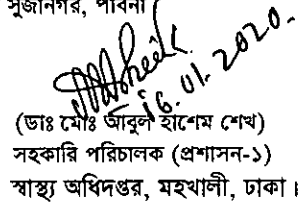 সুজানগর, পাবনা
16.01.2020.
(ডাঃ মোঃ আবুল হাশেম শেখ)
সহকারি পরিচালক (প্রশাসন-১)
স্বাস্থ্য অধিদপ্তর, মহখালী, ঢাকা।